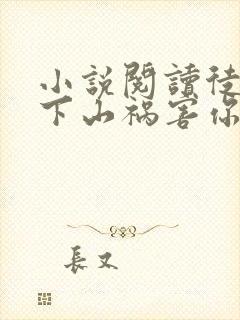 小説閱讀徒
下山禍害你
長又